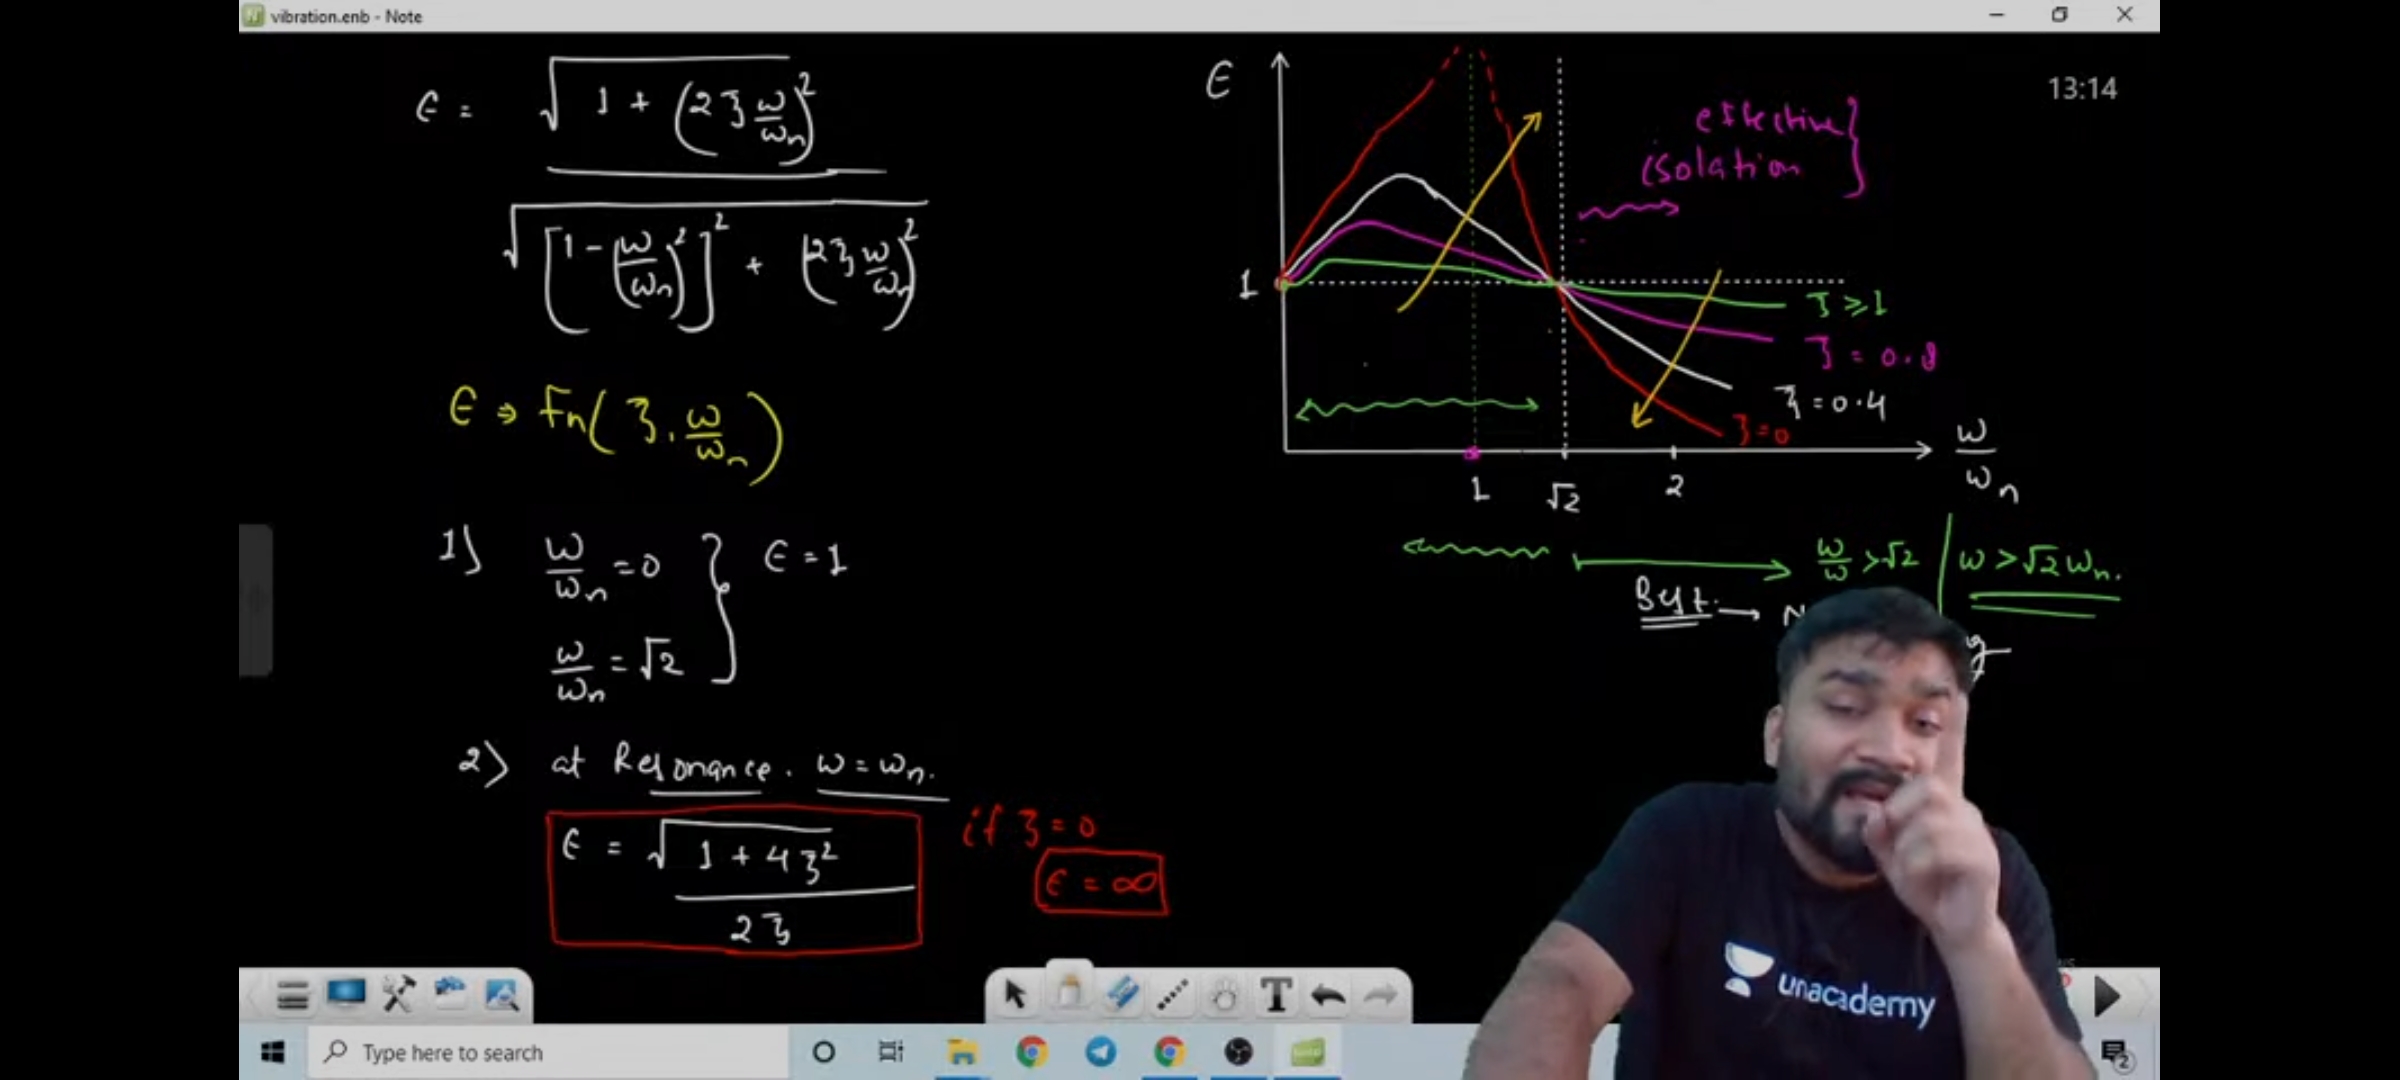 vibration.enb - Note
ϵ = √(1 + (2ξ ω/ωn)²) / √([1 - (ω/ωn)²]² + (2ξ ω/ωn)²)
ϵ ⇒ Fn(ξ, ω/ωn)
1) ω/ωn = 0
ω/ωn = √2
} ϵ = 1
2) at Resonance. ω = ωn.
ϵ = √(1 + 4ξ²) / 2ξ
if ξ = 0
ϵ = ∞
13:14
ϵ
effective
isolation
1
ξ ≥ 1
ξ = 0.8
ξ = 0.4
ξ = 0
1 √2 2
ω/ωn
ω/ω > √2 | ω > √2 ωn.
Best. → N
unacademy
T
Type here to search
2